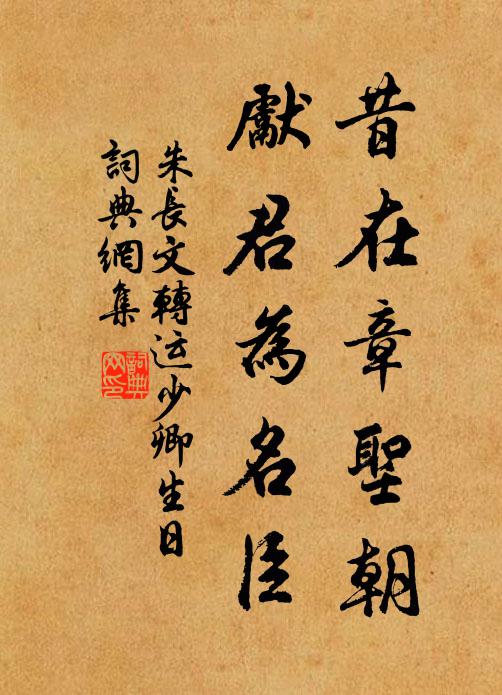 昔在章聖朝
獻君為名臣
朱長文轉运少卿生日
詞典網集
詞典網印